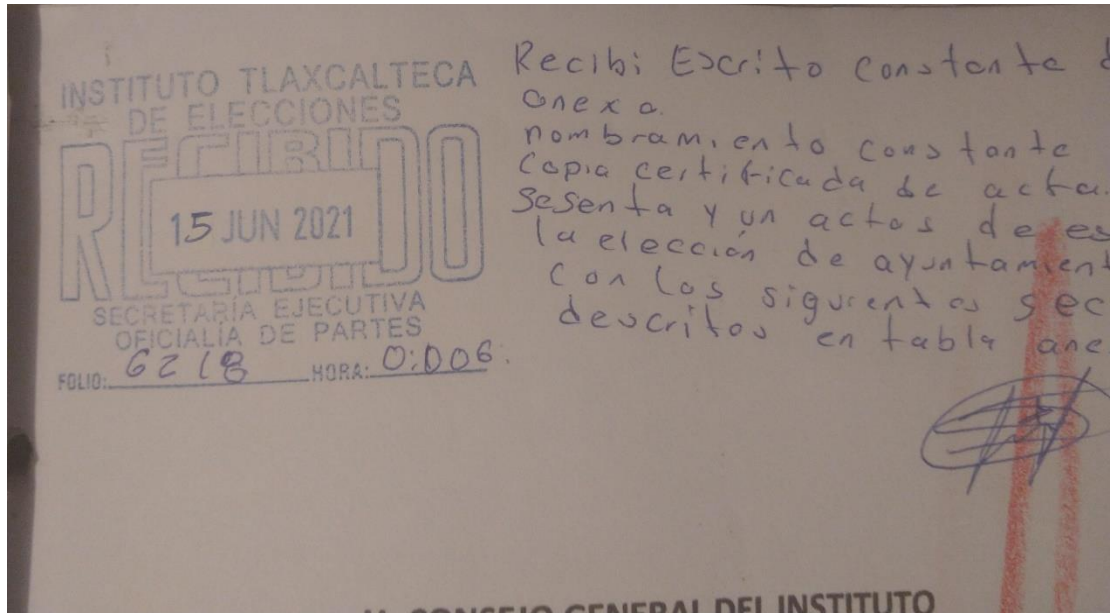 INSTITUTO TLAXCALTECA
DE ELECCIONES
RECIBIDO
15 JUN 2021
SECRETARÍA EJECUTIVA
OFICIALÍA DE PARTES
FOLIO: 6218 HORA: 0:006.
Recibi Escrito constante d
anexo.
nombramiento constante
Copia certificada de acta.
Sesenta y un actas de es
la elección de ayuntamient
con las siguientes sec
descritos en tabla ane
CONSEJO GENERAL DEL INSTITUTO